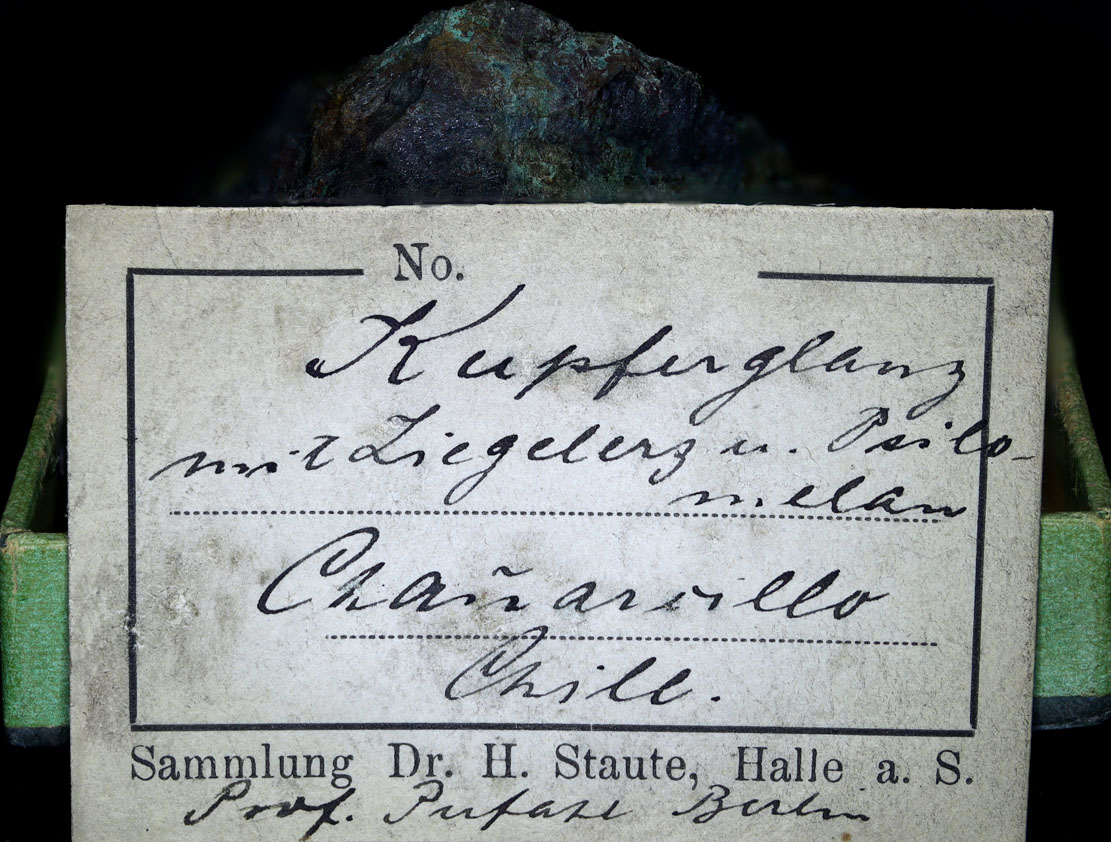 No.
Kupferglanz
mit Ziegelerz u. Psilo-
melan
Chañarcillo
Chile.
Sammlung Dr. H. Staute, Halle a. S.
Prof. Berlin